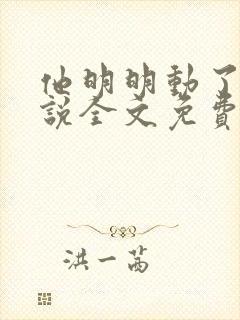 他明明動了
說全文免費
洪一茜